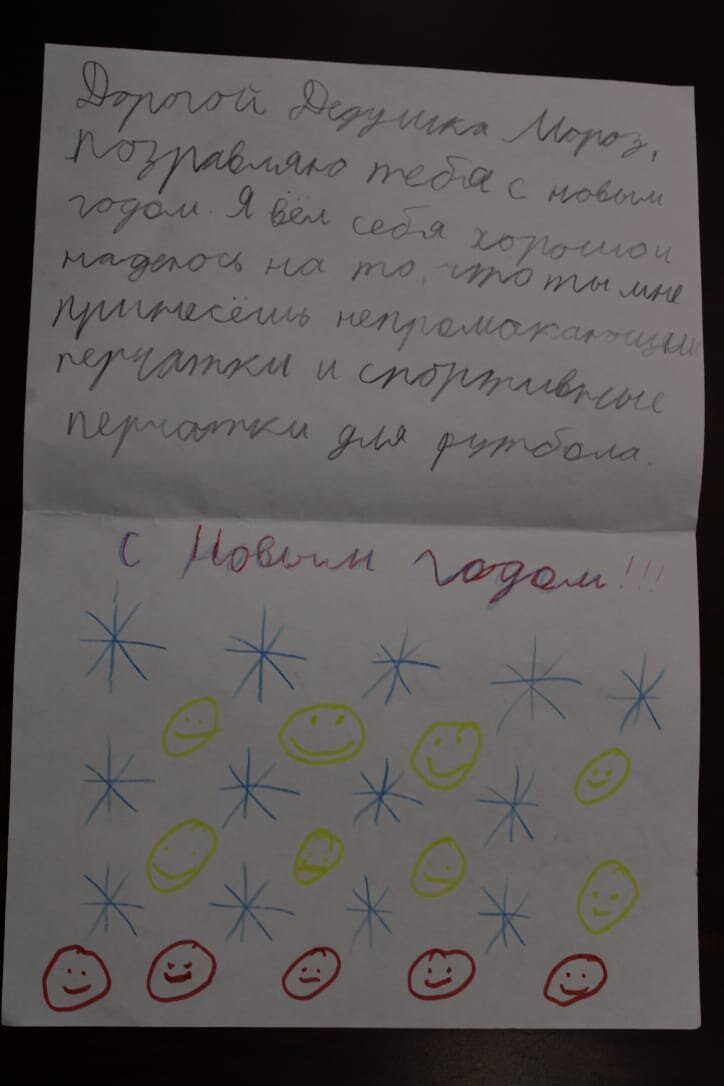 Дорогой Дедушка Мороз,
позравляю тебя с новым
годом. Я вёл себя хорошо и
надеюсь на то, что ты мне
принесёшь непромакающии
перчатки и спортивные
перчатки для футбола.
С Новым годом!!!